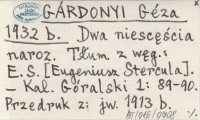 GÁRDONYI Géza
1932 b. Dwa nieszczęścia
naroz. Tłum. z węg.:
E.S. [Eugeniusz Stercula].
– Kal. Góralski 1: 89-90.
Przedruk z: jw. 1913 b.